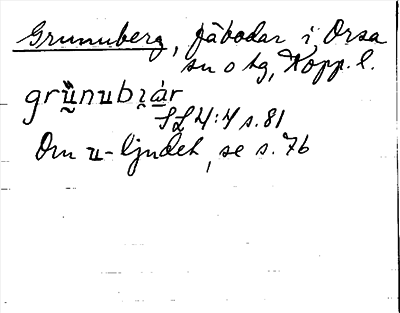 Grunuberg, fäbodar i Orsa
sn o tg, Kopp. l.
grṳ̀nubı̣á̱r
SL 4:4 s. 81
Om u-ljudet, se s. 76